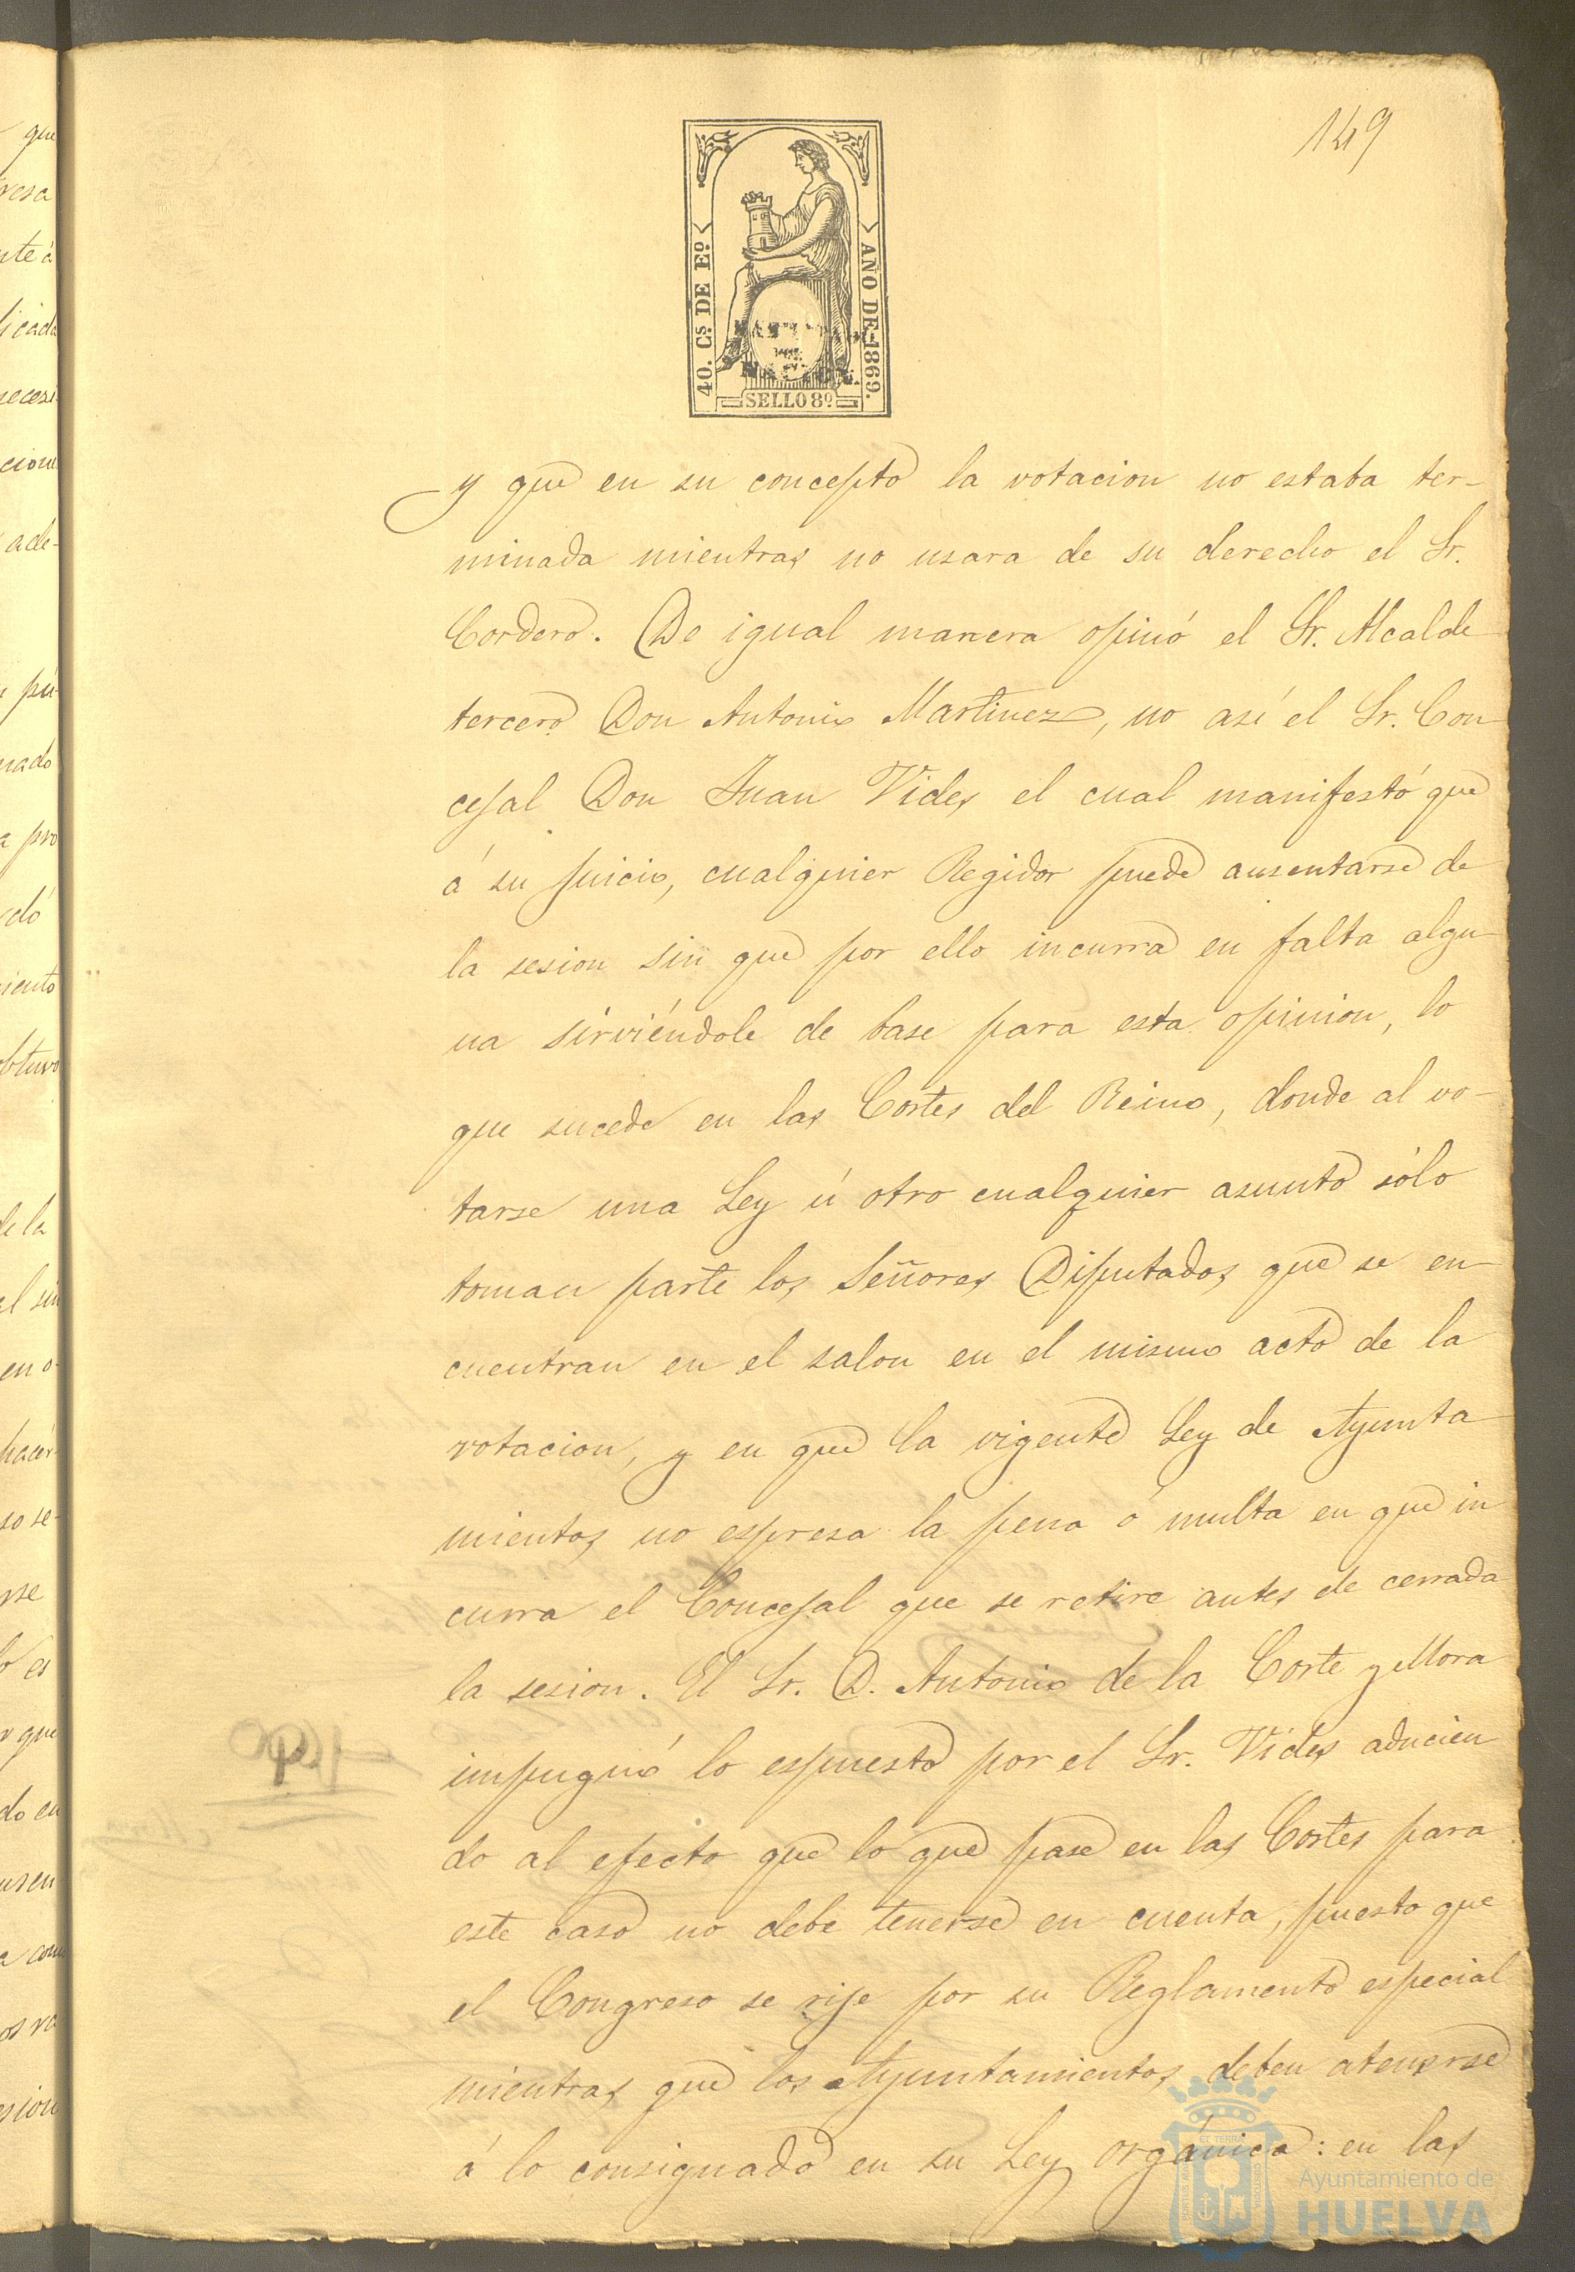 149
40. Cs. DE Eº.
AÑO DE 1869.
SELLO 8º
y que en su concepto la votacion no estaba ter-
minada mientras no usara de su derecho el Sr.
Cordero. De igual manera opinó el Sr. Alcalde
tercero Don Antonio Martinez, no así el Sr. Con
cejal Don Juan Vides el cual manifestó que
á su juicio, cualquier Regidor puede ausentarse de
la sesion sin que por ello incurra en falta algu
na sirviéndole de base para esta opinion, lo
que sucede en las Cortes del Reino, donde al vo-
tarse una Ley ú otro cualquier asunto sólo
toman parte los Señores Diputados que se en
cuentran en el salon en el mismo acto de la
votacion, y en que la vigente Ley de Ayunta
mientos no espresa la pena ó multa en que in
curra el Concejal que se retire antes de cerrada
la sesion. El Sr. D. Antonio de la Corte y Mora
impugnó lo espuesto por el Sr. Vides aducien
do al efecto que lo que pase en las Cortes para
este caso no debe tenerse en cuenta, puesto que
el Congreso se rije por su Reglamento especial
mientras que los Ayuntamientos deben atenerse
á lo consignado en su Ley orgánica: en las
Ayuntamiento de
HUELVA